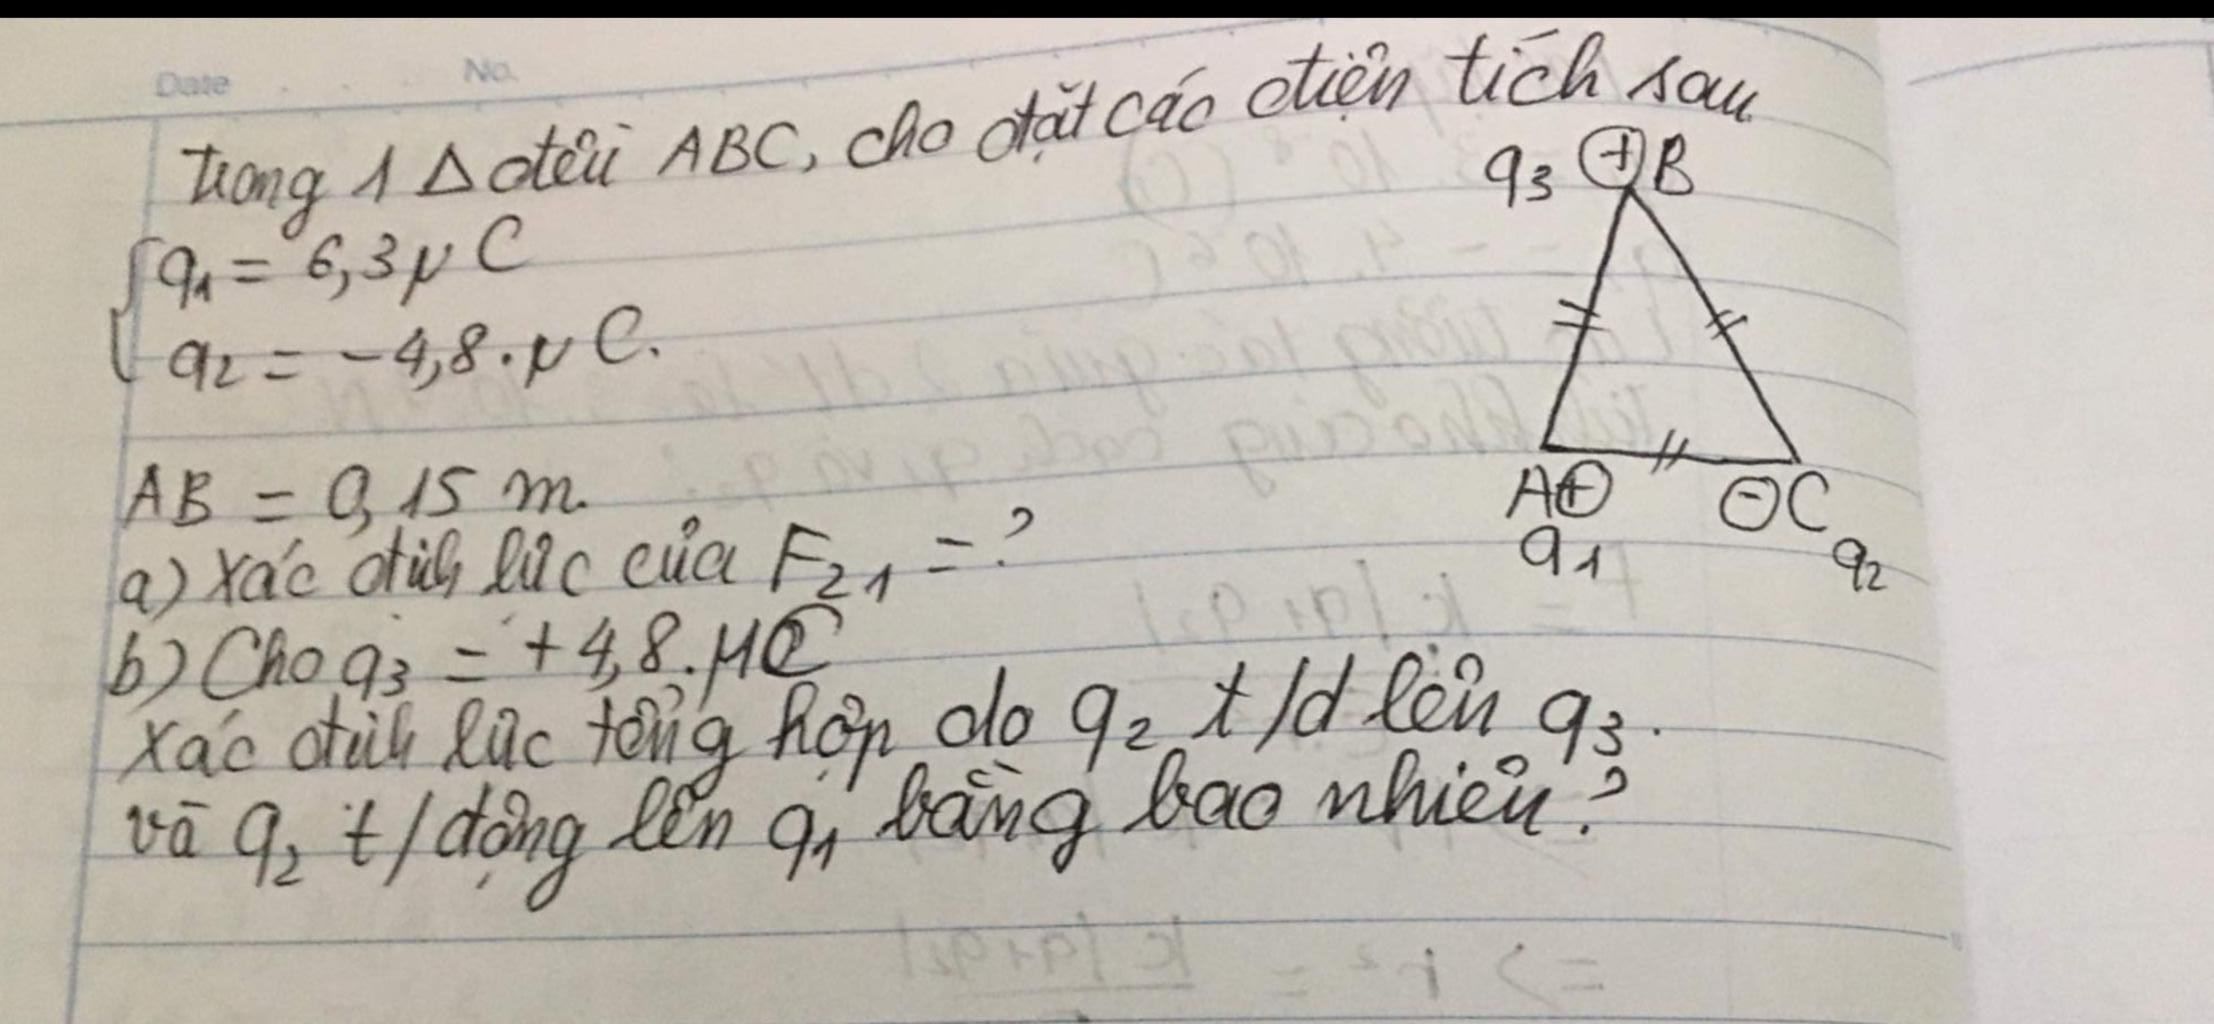 Date No.
Trong 1 Δ đều ABC, cho đặt các điện tích sau
q3 ⊕ B
{ q1 = 6,3 μC
q2 = -4,8 . μC.
AB = 0,15 m.
A⊕ ⊖C
q1 q2
a) Xác định lực của F21 = ?
b) Cho q3 = +4,8 . μC
Xác định lực tổng hợp do q2 t/d lên q3.
và q2 t/động lên q1 bằng bao nhiêu?